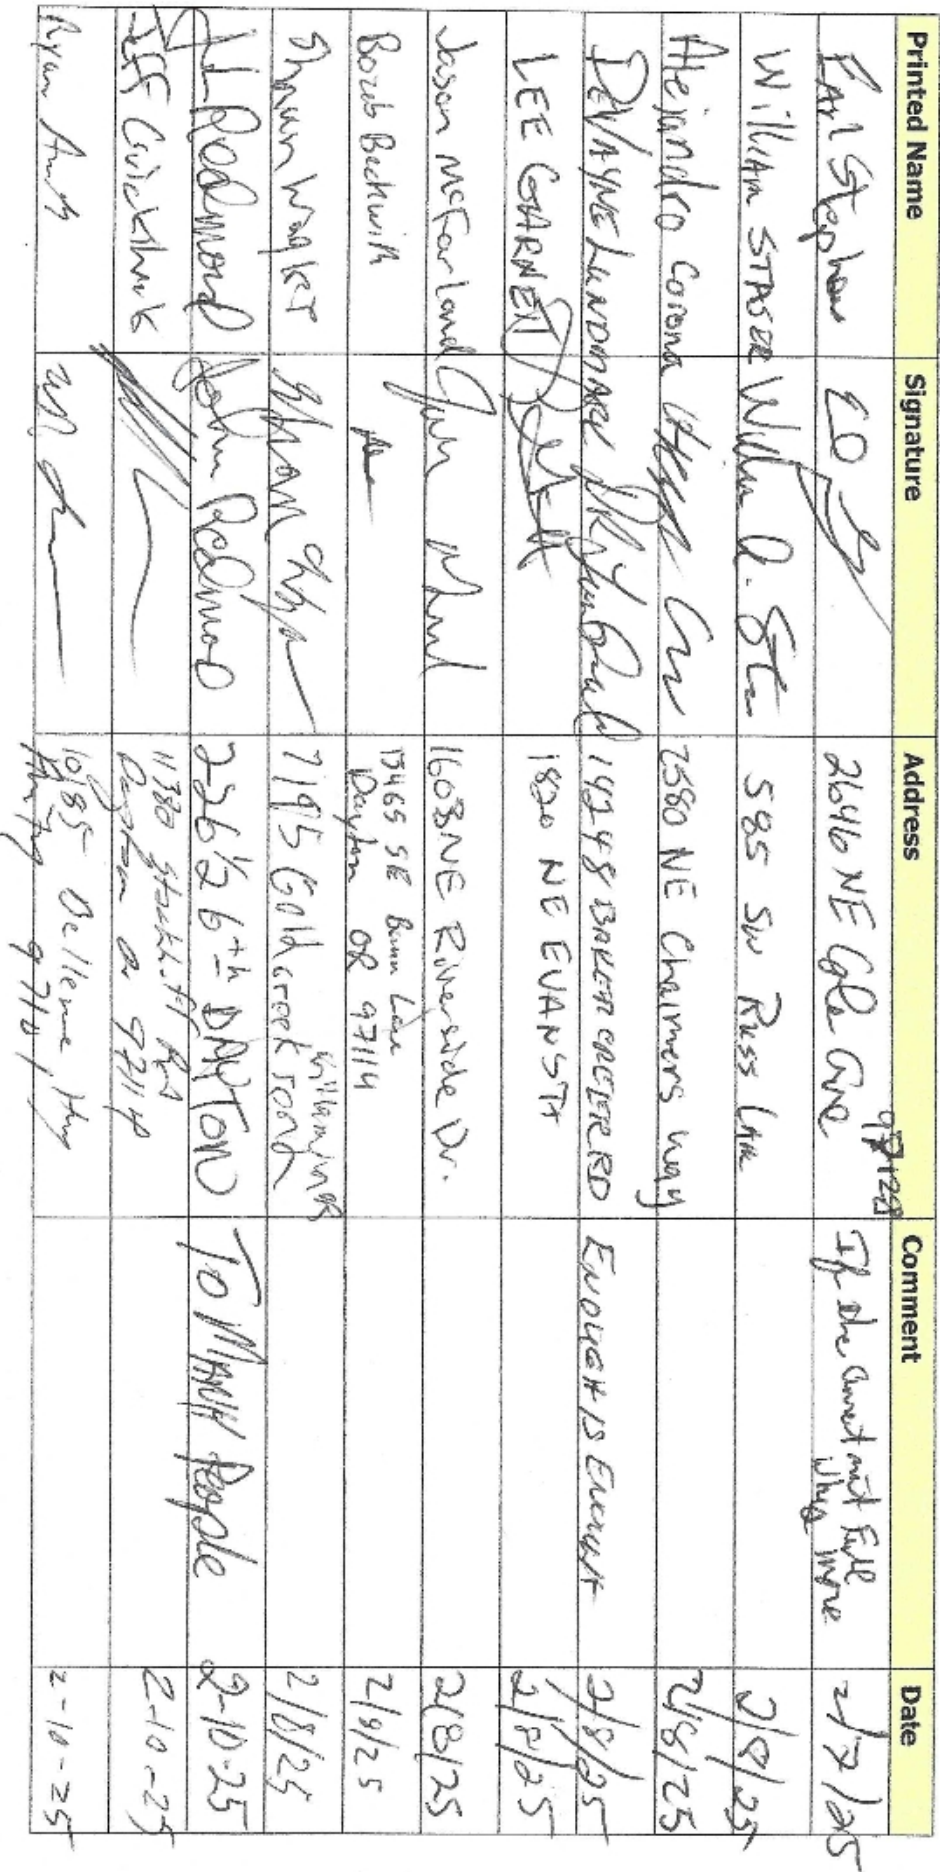 Printed Name Signature Address Comment Date
Earl Stephens 2646 NE Cole Ave 97128 If the current mit Full 2/7/25
why more
William STASER Willi D. St 585 SW Russ Lane 2/8/25
Alejandro Corona 2580 NE Chalmers way 2/8/25
DeVAYNE LUNDMARK 14248 BAKER CREEK RD ENOUGH IS ENOUGH 2/8/25
LEE GARNETT 1820 NE EVANS ST 2/8/25
Jason McFarland 1603 NE Riverside Dr. 2/8/25
Beckwith SE Lane 2/9/25
Dayton OR 97114
Shawn Wingler 7195 Gold creek road 2/8/25
JL Redmond John Redmond 226 1/2 6th DAYTON To MANY People 2-10-25
Jeff Cruickshank 11780 Rd 2-10-25
Dayton or 97114
Ryan 10185 Bellevue Hwy 2-10-25
Amity 97101